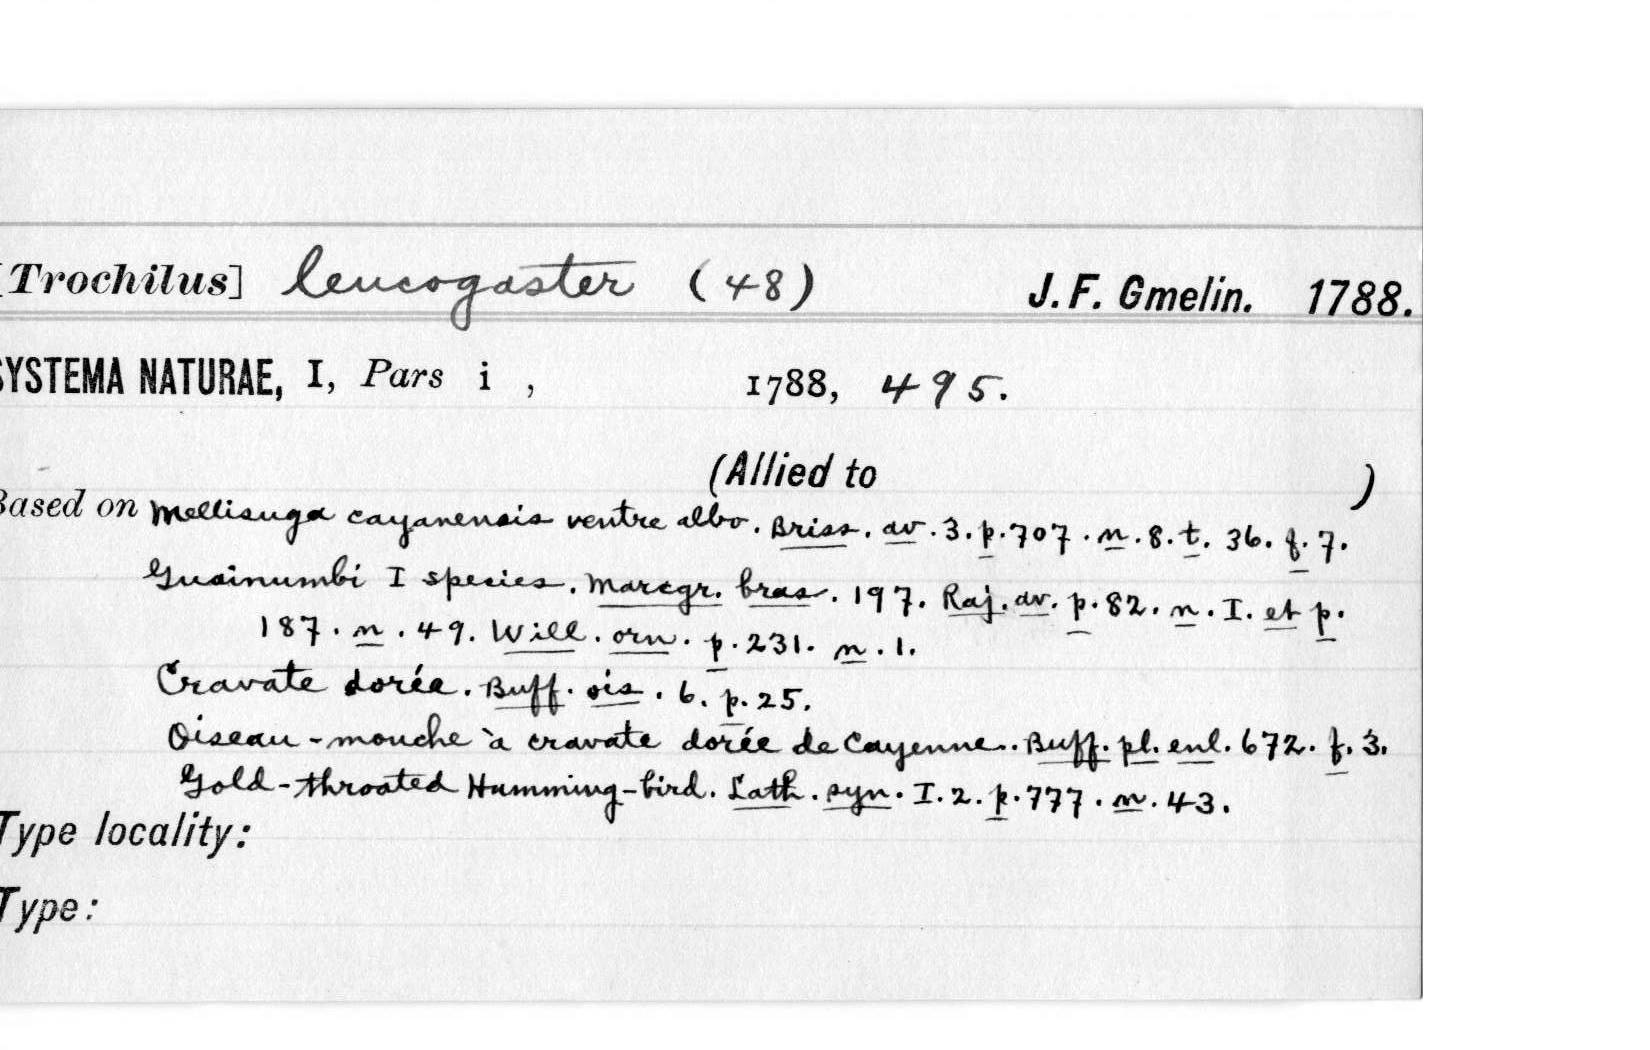 [Trochilus] leucogaster (48) J. F. Gmelin. 1788.
SYSTEMA NATURAE, I, Pars i , 1788, 495.
(Allied to )
Based on Mellisuga cayanensis ventre albo. Briss. av. 3. p. 707. n. 8. t. 36. f. 7.
Guainumbi I species. Marcgr. bras. 197. Raj. av. p. 82. n. I. et p.
187. n. 49. Will. orn. p. 231. n. 1.
Cravate dorée. Buff. ois. 6. p. 25.
Oiseau-mouche à cravate dorée de Cayenne. Buff. pl. enl. 672. f. 3.
Gold-throated Humming-bird. Lath. syn. I. 2. p. 777. n. 43.
Type locality:
Type: